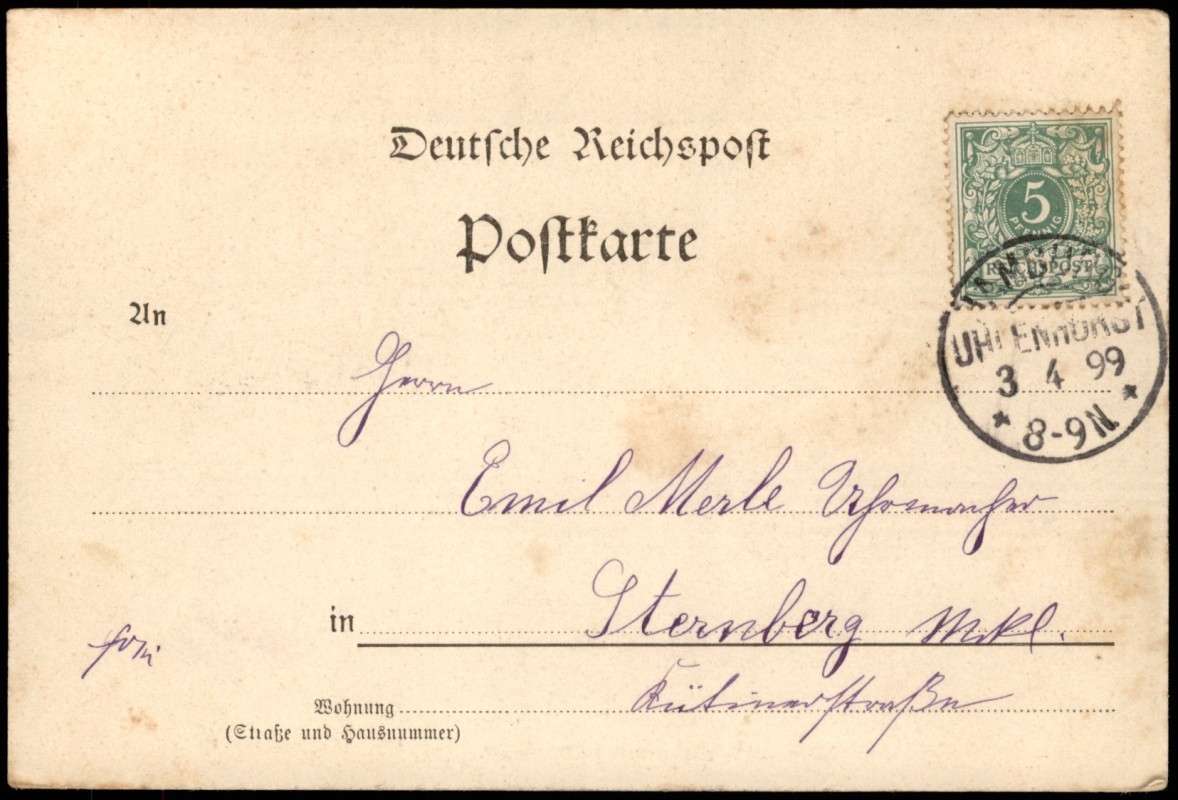 Deutsche Reichspost
Postkarte
5
PFENNIG
REICHSPOST
HAMBURG
UHLENHORST
3 4 99
* 8-9N *
An
Herrn
Emil Merle Uhrmacher
in Sternberg Mkl.
Wohnung Kütinerstraße
(Straße und Hausnummer)